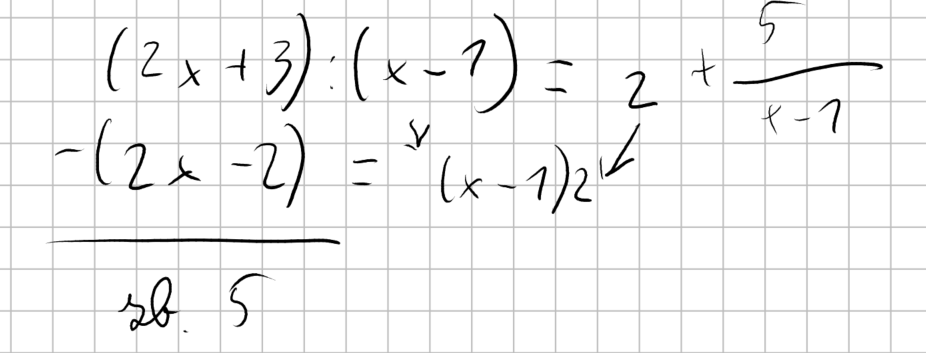 (2x+3):(x-1) = 2 + 5/(x-1)
-(2x-2) = (x-1)2
zb. 5